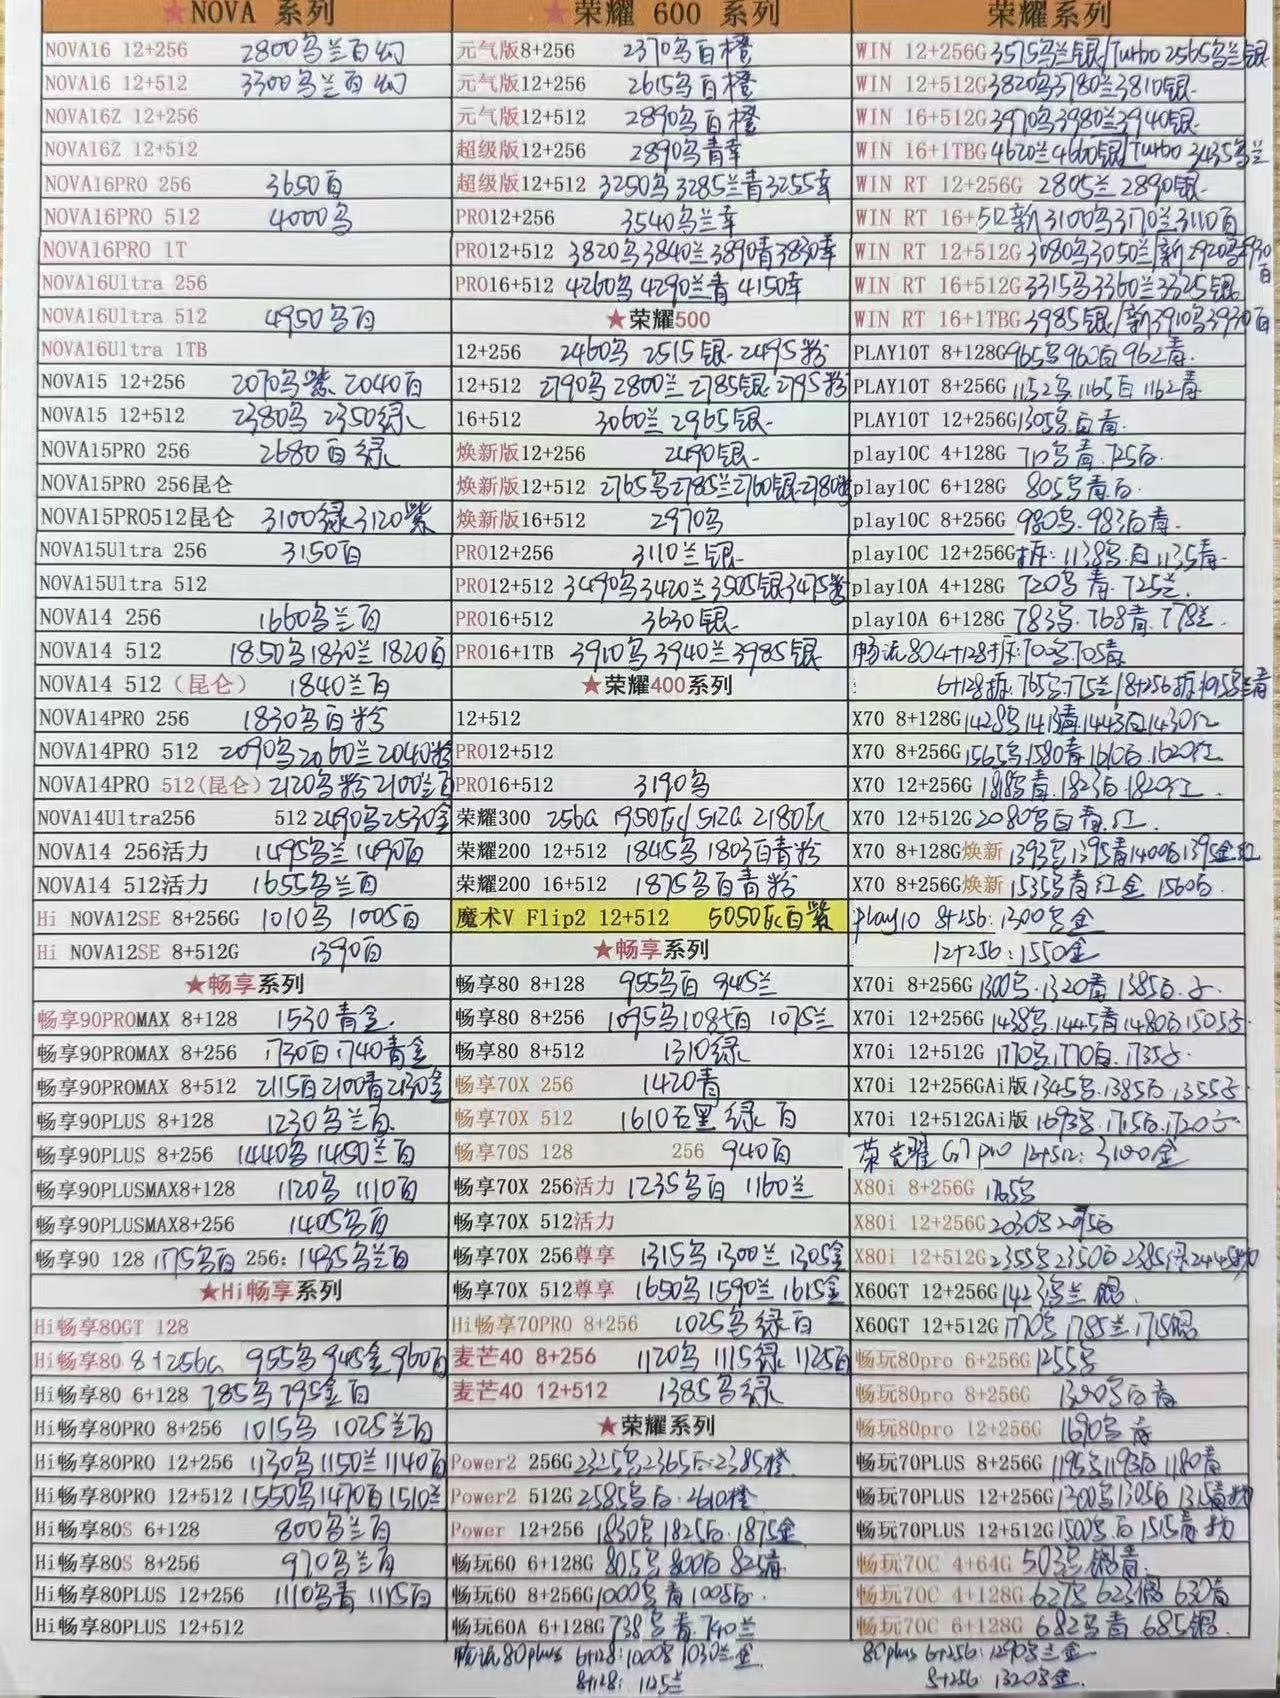 ★NOVA 系列
NOVA16 12+256 2800乌兰百幻
NOVA16 12+512 3300乌兰百幻
NOVA16Z 12+256
NOVA16Z 12+512
NOVA16PRO 256 3650百
NOVA16PRO 512 4000乌
NOVA16PRO 1T
NOVA16Ultra 256
NOVA16Ultra 512 4950乌百
NOVA16Ultra 1TB
NOVA15 12+256 2070乌紫 2040百
NOVA15 12+512 2380乌 2350绿
NOVA15PRO 256 2680百绿
NOVA15PRO 256昆仑
NOVA15PRO512昆仑 3100绿 3120紫
NOVA15Ultra 256 3150百
NOVA15Ultra 512
NOVA14 256 1660乌兰百
NOVA14 512 1850乌1830兰 1820百
NOVA14 512（昆仑） 1840兰百
NOVA14PRO 256 1830乌百粉
NOVA14PRO 512 2090乌2060兰2040粉
NOVA14PRO 512(昆仑) 2120乌粉 2100兰百
NOVA14Ultra256 512 2490乌2530金
NOVA14 256活力 1495乌兰 1490百
NOVA14 512活力 1655乌兰百
Hi NOVA12SE 8+256G 1010乌 1005百
Hi NOVA12SE 8+512G 1390百
★畅享系列
畅享90PROMAX 8+128 1530青金
畅享90PROMAX 8+256 1730百 1740青金
畅享90PROMAX 8+512 2115百2100青2130金
畅享90PLUS 8+128 1230乌兰百
畅享90PLUS 8+256 1440乌 1450兰百
畅享90PLUSMAX8+128 1120乌 1110百
畅享90PLUSMAX8+256 1405乌百
畅享90 128 1175乌百 256: 1435乌兰百
★Hi畅享系列
Hi畅享80GT 128
Hi畅享80 8+256G 955乌 945金 960百
Hi畅享80 6+128 785乌 795金百
Hi畅享80PRO 8+256 1015乌 1025兰百
Hi畅享80PRO 12+256 1130乌1150兰1140百
Hi畅享80PRO 12+512 1550乌1470百1510兰
Hi畅享80S 6+128 800乌兰百
Hi畅享80S 8+256 970乌兰百
Hi畅享80PLUS 12+256 1110乌青 1115百
Hi畅享80PLUS 12+512
★荣耀 600 系列
元气版8+256 2370乌百橙
元气版12+256 2615乌百橙
元气版12+512 2890乌百橙
超级版12+256 2890乌青幸
超级版12+512 3250乌3285兰青3255幸
PRO12+256 3540乌兰幸
PRO12+512 3820乌3840兰3890青3830幸
PRO16+512 4260乌4290兰青 4150幸
★荣耀500
12+256 2460乌 2515银 2495粉
12+512 2790乌2800兰2785银2795粉
16+512 3060兰2965银
焕新版12+256 2490银
焕新版12+512 2765乌2785兰2760银2780粉
焕新版16+512 2970乌
PRO12+256 3110兰银
PRO12+512 3490乌3420兰3505银3475粉
PRO16+512 3630银
PRO16+1TB 3910乌3940兰3985银
★荣耀400系列
12+512
PRO12+512
PRO16+512 3190乌
荣耀300 256G 1950灰/512G 2180灰
荣耀200 12+512 1845乌 1803百青粉
荣耀200 16+512 1875乌百青粉
魔术V Flip2 12+512 5050灰百紫
★畅享系列
畅享80 8+128 955乌百 945兰
畅享80 8+256 1095乌1085百 1075兰
畅享80 8+512 1310绿
畅享70X 256 1420青
畅享70X 512 1610石黑 绿 百
畅享70S 128 256 940百
畅享70X 256活力 1235乌百 1160兰
畅享70X 512活力
畅享70X 256尊享 1315乌1300兰 1305金
畅享70X 512尊享 1650乌1590兰1615金
Hi畅享70PRO 8+256 1025乌绿百
麦芒40 8+256 1120乌 1115绿 1125百
麦芒40 12+512 1385乌绿
★荣耀系列
Power2 256G 2325乌2365百·2385橙
Power2 512G 2585乌百·2610橙
Power 12+256 1830乌1825百·1875金
畅玩60 6+128G 805乌800百825青
畅玩60 8+256G1000乌青1005百
畅玩60A 6+128G 738乌青·740兰
畅玩80plus 6+128:1000乌1030兰金
8+128: 1125兰
荣耀系列
WIN 12+256G 3575乌兰银/Turbo 2565乌兰银
WIN 12+512G3820乌3780兰3810银
WIN 16+512G3970乌3980兰3940银
WIN 16+1TBG 4620兰4660银/Turbo 3435乌兰
WIN RT 12+256G 2805兰 2890银
WIN RT 16+512新3100乌3170兰3110百
WIN RT 12+512G 3080乌3050兰/新2920乌2930百
WIN RT 16+512G 3315乌3360兰3325银
WIN RT 16+1TBG 3985银/新3910乌3930百
PLAY10T 8+128G965乌960百962青
PLAY10T 8+256G 1152乌1165百 1162青
PLAY10T 12+256G1305乌百青
play10C 4+128G 710乌青·725百
play10C 6+128G 805乌青百
play10C 8+256G 980乌·983百青
play10C 12+256G拆:1138乌百1135青
play10A 4+128G 720乌青·725兰
play10A 6+128G 783乌·768青·778兰
畅玩80 4+128拆:700乌705青
6+128拆:765乌775兰/8+256拆:1095乌兰青
X70 8+128G1428乌1413青1443百1430红
X70 8+256G 1565乌1580青1610百·1620红
X70 12+256G 1818乌青·1823百·1820红
X70 12+512G 2080乌百青·红
X70 8+128G焕新 1393乌1395青1400百1395金红
X70 8+256G焕新 1535乌青红金 1560百
play10 8+256: 1300乌金
12+256:1550金
X70i 8+256G 1300乌·1320青 1385百·紫
X70i 12+256G 1438乌·1445青1480百1505紫
X70i 12+512G 1770乌·1770百·1735紫
X70i 12+256GAi版1345乌·1385百·1355紫
X70i 12+512GAi版1693乌·1715百·1720紫
荣耀G7 pro 12+512: 3100金
X80i 8+256G 1765乌
X80i 12+256G2030乌2095百
X80i 12+512G2355乌2350百2385绿2445粉
X60GT 12+256G1423乌兰 银
X60GT 12+512G1770乌 1785兰·1715银
畅玩80pro 6+256G1255乌
畅玩80pro 8+256G 1300乌百青
畅玩80pro 12+256G 1690乌青
畅玩70PLUS 8+256G 1195乌1193百1180青
畅玩70PLUS 12+256G1300乌1305百1315青
畅玩70PLUS 12+512G1500乌百1515青
畅玩70C 4+64G 503乌银青
畅玩70C 4+128G 627乌625银630青
畅玩70C 6+128G 682乌青685银
80plus 6+256: 1290乌兰金
8+256: 1320乌金